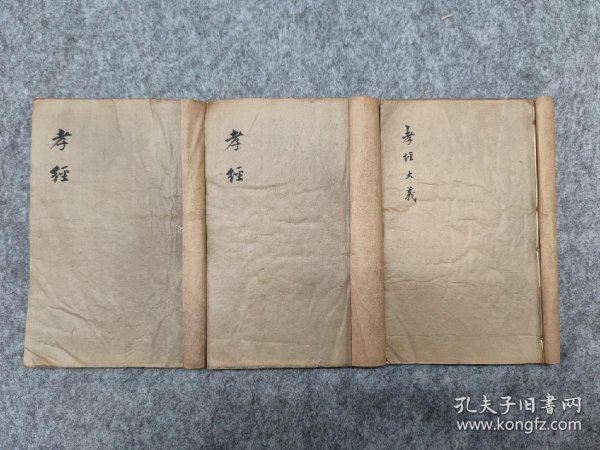 孝經
孝經
孝經大義
孔夫子旧書网
www.kongfz.com